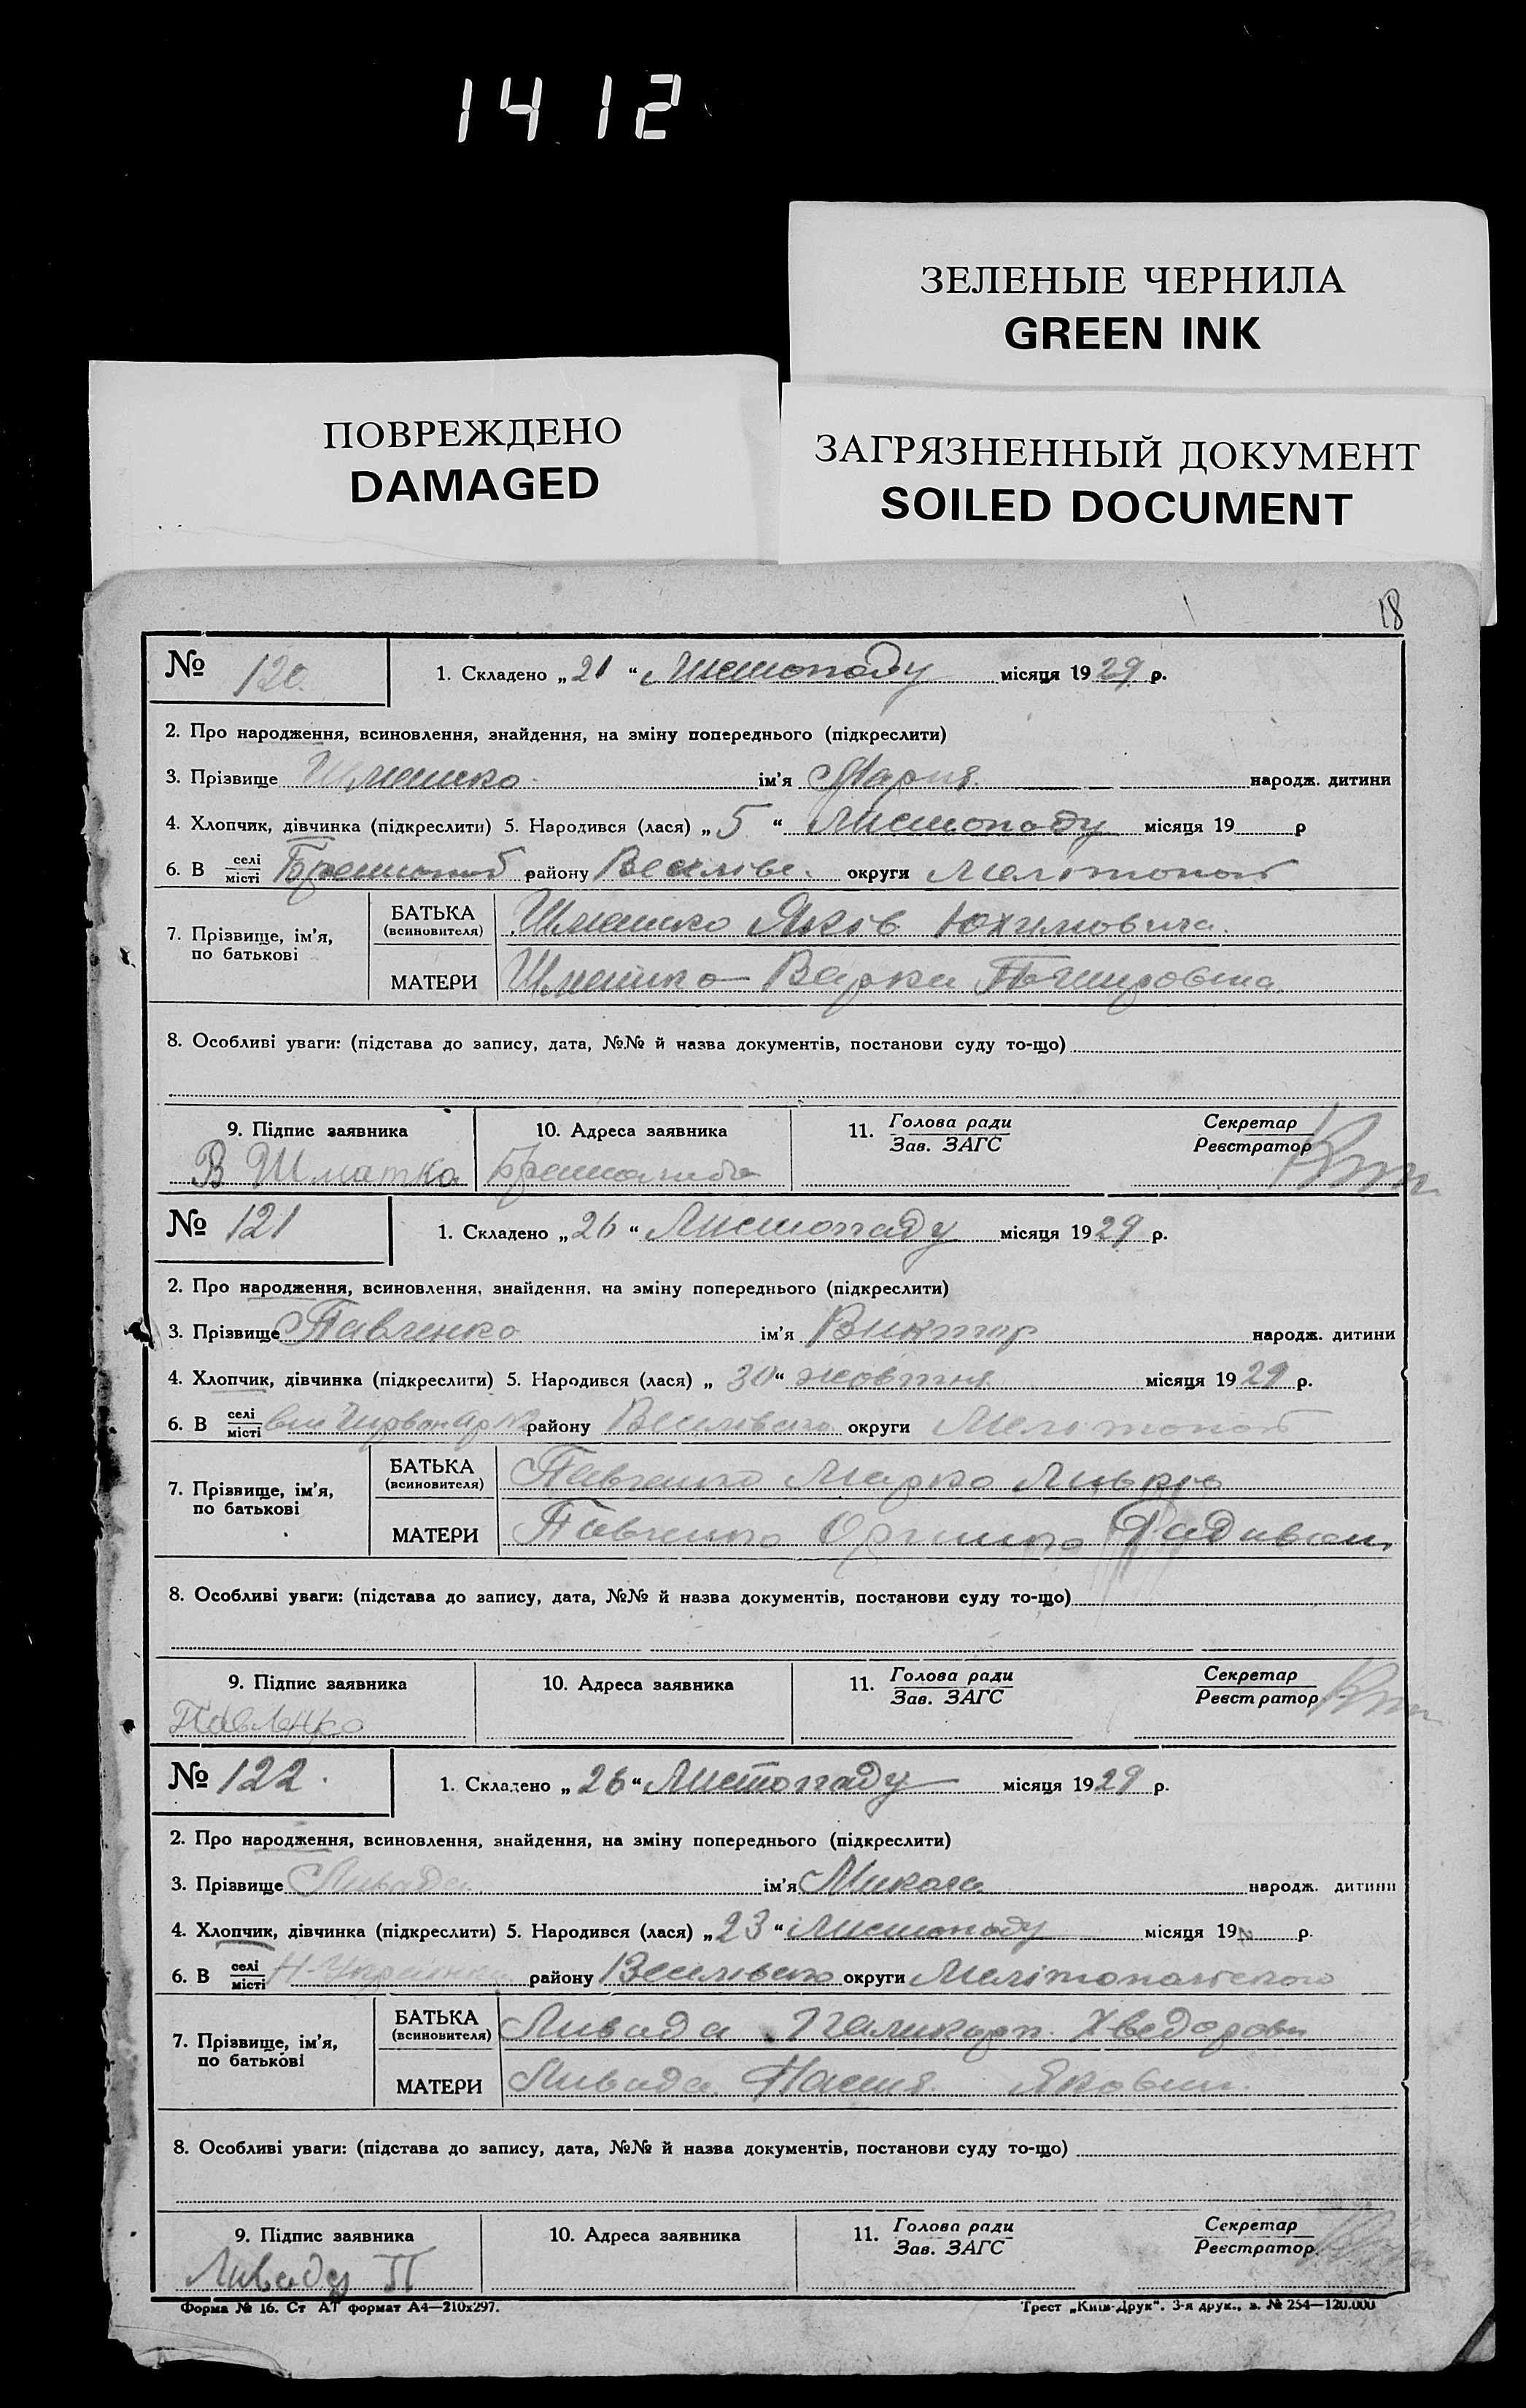 1412
ЗЕЛЕНЫЕ ЧЕРНИЛА
GREEN INK
ПОВРЕЖДЕНО
DAMAGED
ЗАГРЯЗНЕННЫЙ ДОКУМЕНТ
SOILED DOCUMENT
18
№ 120. 1. Складено „21“ Листопаду місяця 1929 р.
2. Про народження, всиновлення, знайдення, на зміну попереднього (підкреслити)
3. Прізвище Шматко ім'я Мария народж. дитини
4. Хлопчик, дівчинка (підкреслити) 5. Народився (лася) „5“ Листопаду місяця 19 р
6. В селі/місті району Веселівс. округи Мелітопол
7. Прізвище, ім'я, по батькові
БАТЬКА (всиновителя) Шматко Яків Юхимовича
МАТЕРИ Шматко Варка
8. Особливі уваги: (підстава до запису, дата, №№ й назва документів, постанови суду то-що)
9. Підпис заявника 10. Адреса заявника 11. Голова ради/Зав. ЗАГС Секретар/Реєстратор
В Шматко
№ 121 1. Складено „26“ Листопаду місяця 1929 р.
2. Про народження, всиновлення, знайдення, на зміну попереднього (підкреслити)
3. Прізвище Павленко ім'я Виктор народж. дитини
4. Хлопчик, дівчинка (підкреслити) 5. Народився (лася) „30“ жовтня місяця 1929 р.
6. В селі/місті району Веселівсько округи Мелітопол
7. Прізвище, ім'я, по батькові
БАТЬКА (всиновителя) Павленко Марко
МАТЕРИ Павленко
8. Особливі уваги: (підстава до запису, дата, №№ й назва документів, постанови суду то-що)
9. Підпис заявника 10. Адреса заявника 11. Голова ради/Зав. ЗАГС Секретар/Реєстратор
Павленко
№ 122. 1. Складено „26“ Листопаду місяця 1929 р.
2. Про народження, всиновлення, знайдення, на зміну попереднього (підкреслити)
3. Прізвище Ливада ім'я Микола народж. дитини
4. Хлопчик, дівчинка (підкреслити) 5. Народився (лася) „23“ Листопаду місяця 19 р.
6. В селі/місті Н-Українка району Веселівсько округи Мелітопольского
7. Прізвище, ім'я, по батькові
БАТЬКА (всиновителя) Ливада Паликарп Хведорови
МАТЕРИ Ливада
8. Особливі уваги: (підстава до запису, дата, №№ й назва документів, постанови суду то-що)
9. Підпис заявника 10. Адреса заявника 11. Голова ради/Зав. ЗАГС Секретар/Реєстратор
Ливада П
Форма № 16. Ст АТ формат А4—210х297. Трест „Київ-Друк“. 3-я друк., з. № 254—120.000